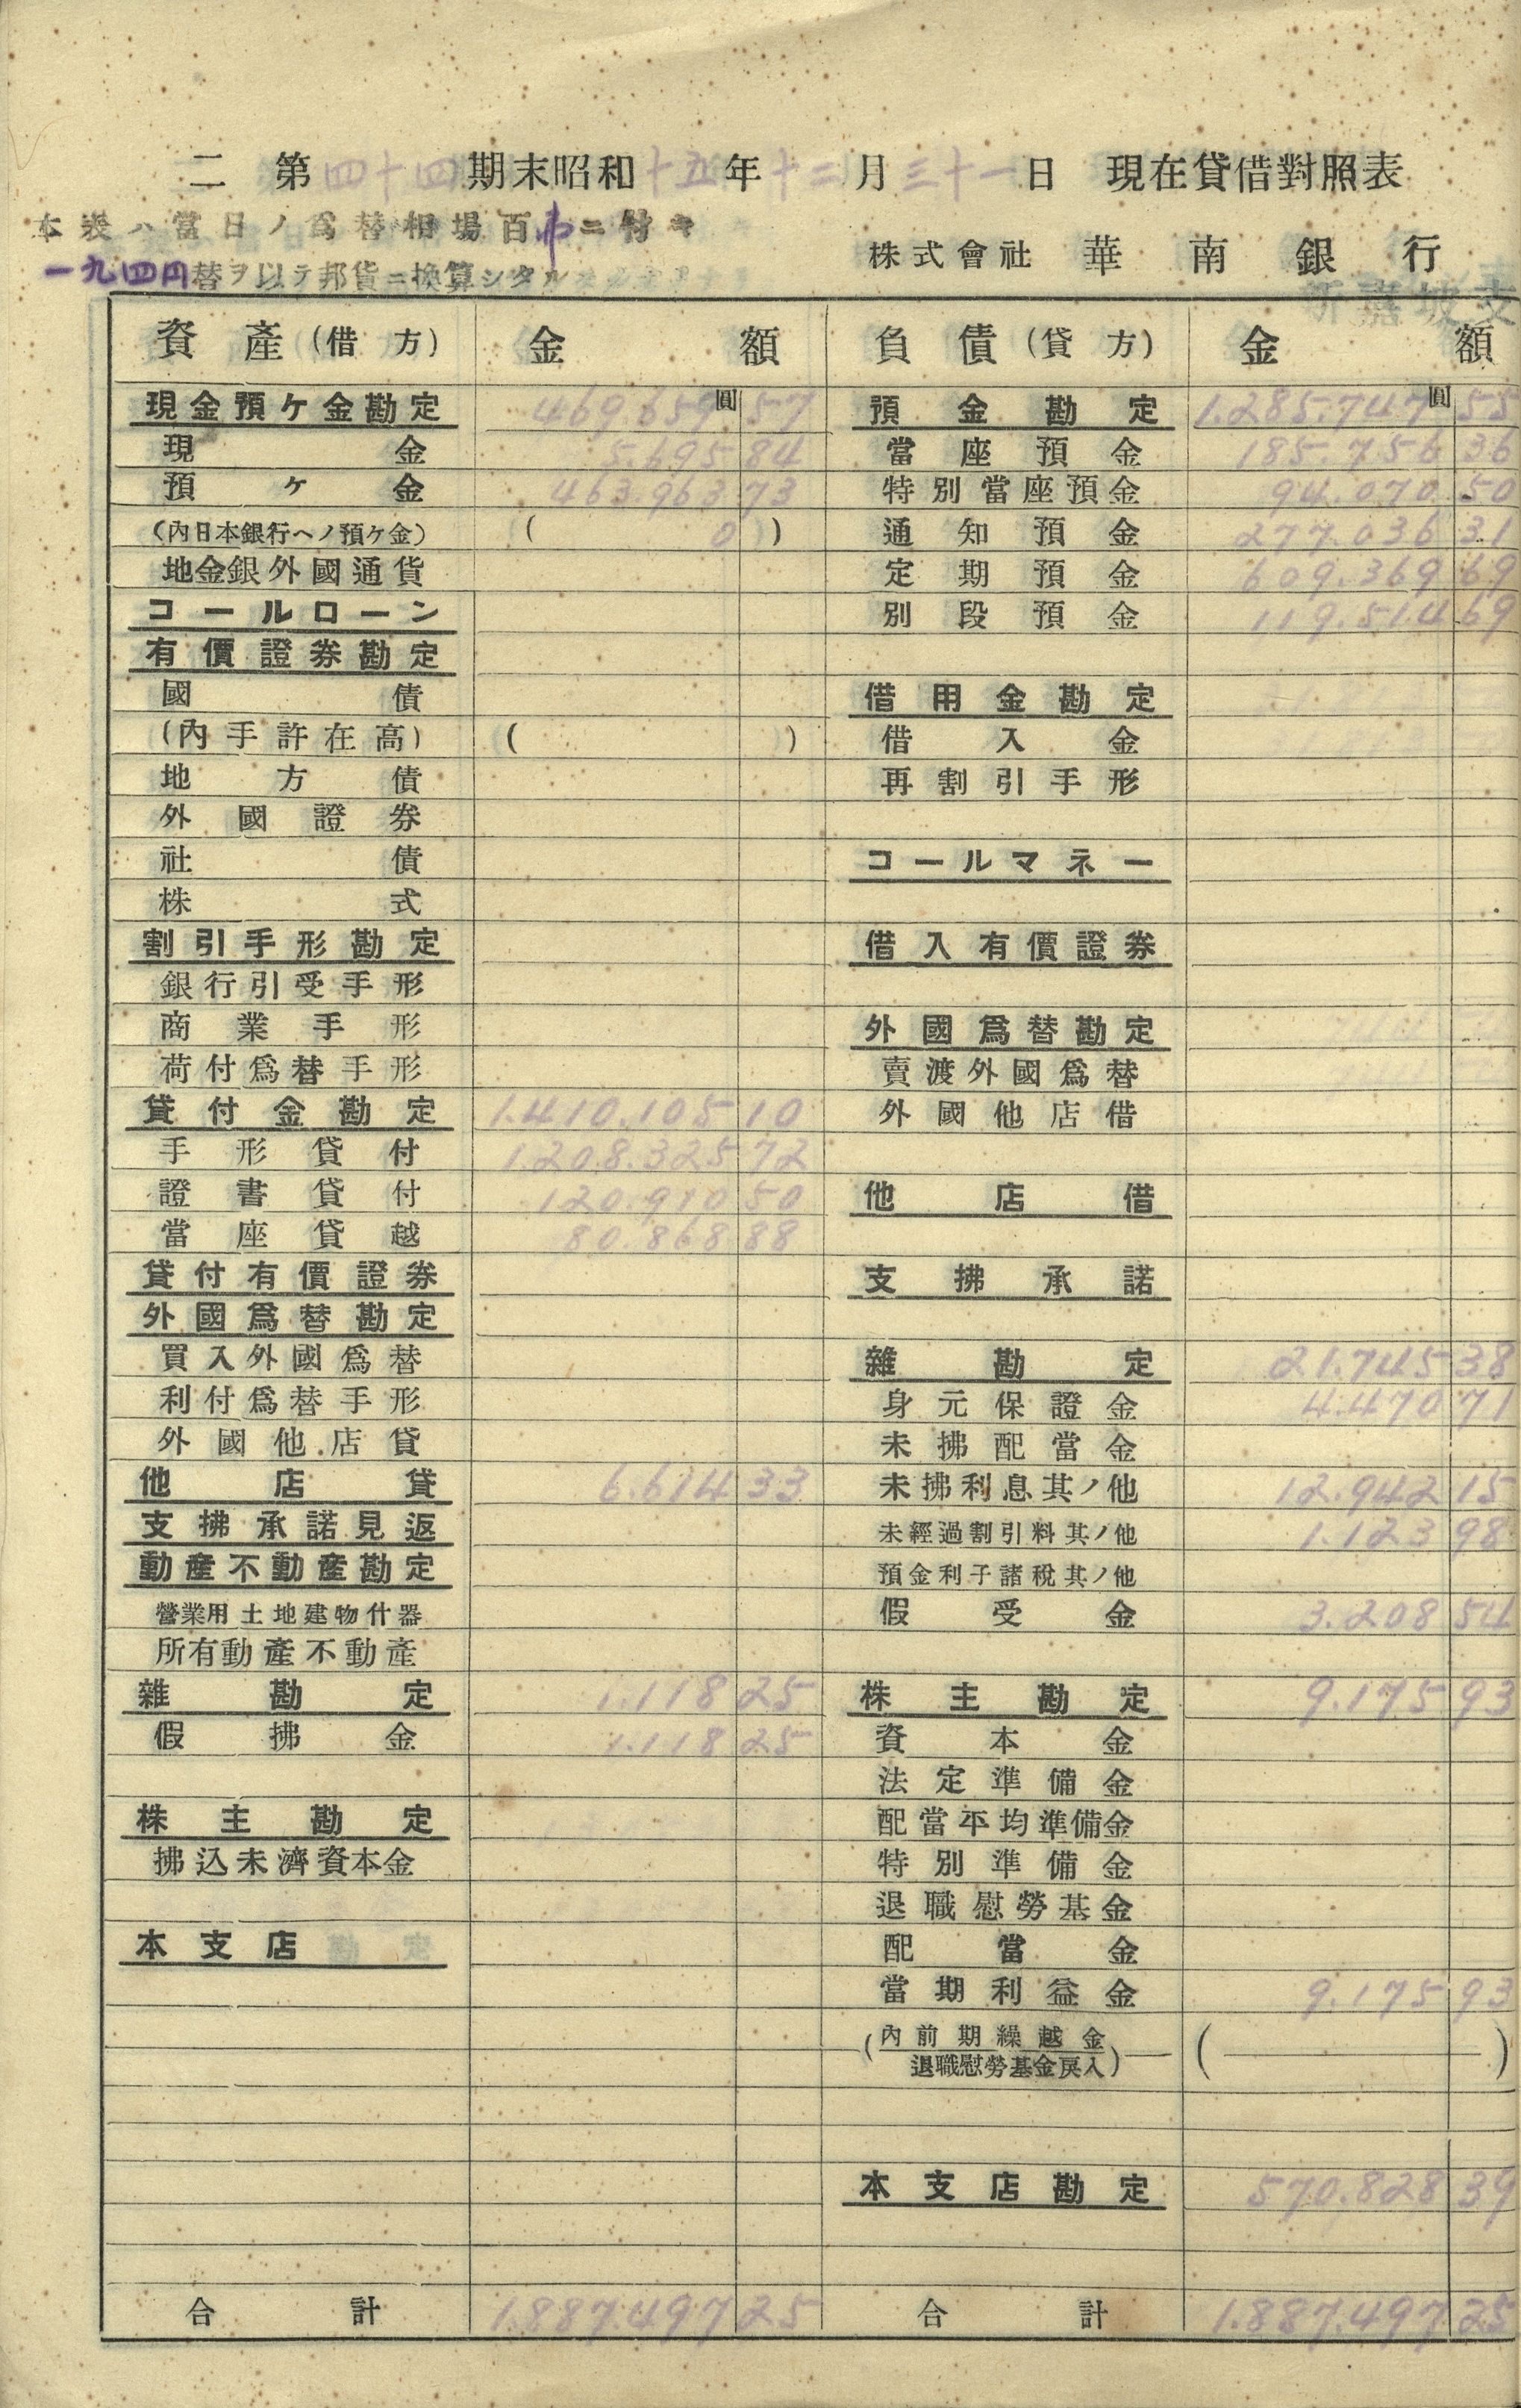 二 第四十四期末昭和十五年十二月三十一日 現在貸借對照表
本表ハ當日ノ爲替相場百弗ニ付キ
一九四円替ヲ以テ邦貨ニ換算シタル
株式會社 華南銀行
新嘉坡支
資產(借方) 金額 負債(貸方) 金額
現金預ケ金勘定 469.659圓57 預金勘定 1.285.747圓55
現金 5.695 84 當座預金 185.756 36
預ケ金 463.963 73 特別當座預金 94.070 50
(內日本銀行ヘノ預ケ金) ( 0 ) 通知預金 277.036 31
地金銀外國通貨 定期預金 609.369 69
コールローン 別段預金 119.514 69
有價證券勘定
國債 借用金勘定
(內手許在高) ( ) 借入金
地方債 再割引手形
外國證券
社債 コールマネー
株式
割引手形勘定 借入有價證券
銀行引受手形
商業手形 外國爲替勘定
荷付爲替手形 賣渡外國爲替
貸付金勘定 1.410.105 10 外國他店借
手形貸付 1.208.325 72
證書貸付 120.910 50 他店借
當座貸越 80.868 88
貸付有價證券 支拂承諾
外國爲替勘定
買入外國爲替 雜勘定 21.745 38
利付爲替手形 身元保證金 4.470 71
外國他店貸 未拂配當金
他店貸 6.614 33 未拂利息其ノ他 12.942 15
支拂承諾見返 未經過割引料其ノ他 1.123 98
動產不動產勘定 預金利子諸稅其ノ他
營業用土地建物什器 假受金 3.208 54
所有動產不動產
雜勘定 1.118 25 株主勘定 9.175 93
假拂金 1.118 25 資本金
法定準備金
株主勘定 配當平均準備金
拂込未濟資本金 特別準備金
退職慰勞基金
本支店勘定 配當金
當期利益金 9.175 93
(內前期繰越金 退職慰勞基金戾入) ( )
本支店勘定 570.828 39
合計 1.887.497 25 合計 1.887.497 25